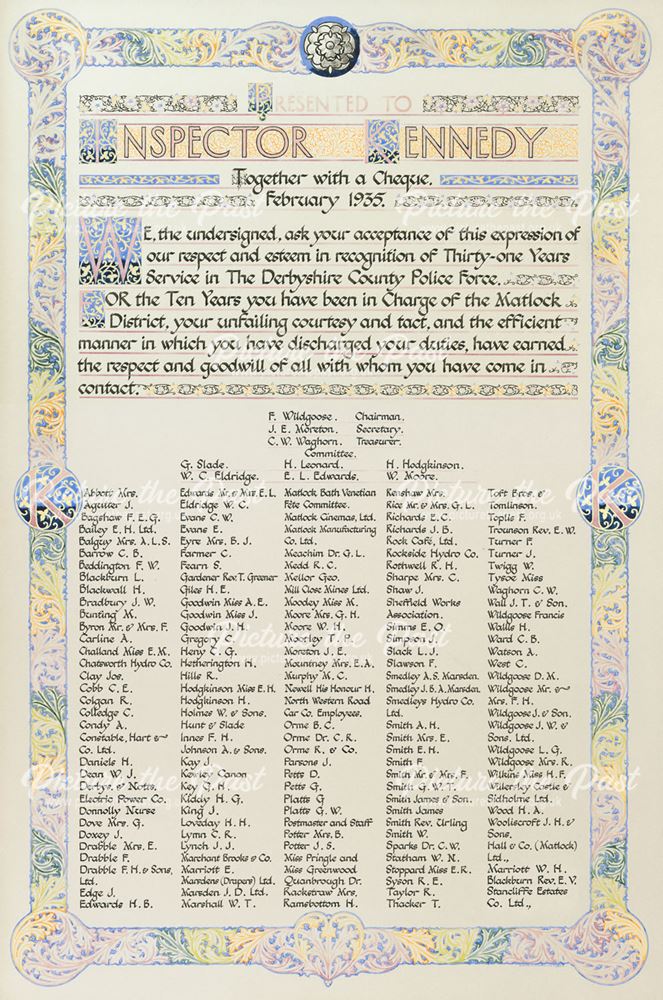 PRESENTED TO
INSPECTOR KENNEDY
Together with a Cheque.
February 1935.
WE, the undersigned, ask your acceptance of this expression of
our respect and esteem in recognition of Thirty-one Years
Service in The Derbyshire County Police Force.
FOR the Ten Years you have been in Charge of the Matlock
District, your unfailing courtesy and tact, and the efficient
manner in which you have discharged your duties, have earned
the respect and goodwill of all with whom you have come in
contact.
F. Wildgoose. Chairman.
J. E. Moreton. Secretary.
C. W. Waghorn. Treasurer.
Committee.
G. Slade. H. Leonard. H. Hodgkinson.
W. C. Eldridge. E. L. Edwards. W. Moore.
Abbott Mrs.
Aguter J.
Bagshaw F. E. G.
Bailey E. H. Ltd.
Balguy Mrs. A. L. S.
Barrow C. B.
Beddington F. W.
Blackburn L.
Blackwall H.
Bradbury J. W.
Bunting M.
Byron Mr. & Mrs. F.
Carline A.
Challand Miss E. M.
Chatsworth Hydro Co.
Clay Jos.
Cobb C. E.
Colgan R.
Colledge C.
Condy A.
Constable, Hart &
Co. Ltd.
Daniels H.
Dean W. J.
Derbys. & Notts.
Electric Power Co.
Donnolly Nurse
Dove Mrs. G.
Doxey J.
Drabble Mrs. E.
Drabble F.
Drabble F. H. & Sons,
Ltd.
Edge J.
Edwards H. B.
Edwards Mr. & Mrs. E. L.
Eldridge W. C.
Evans C. W.
Evans E.
Eyre Mrs. B. J.
Farmer C.
Fearn S.
Gardener Rev. T. Greener
Giles H. E.
Goodwin Miss A. E.
Goodwin Miss J.
Goodwin J. H.
Gregory
Heny C. G.
Hetherington H.
Hills R.
Hodgkinson Miss E. H.
Hodgkinson H.
Holmes W. & Sons.
Hunt & Slade
Innes F. H.
Johnson A. & Sons.
Kay J.
Kewley Canon
Key G. H.
Kiddy H. G.
King J.
Loveday H. H.
Lymn C. R.
Lynch J. J.
Marchant Brooks & Co.
Marriott E.
Marsdens (Drapers) Ltd.
Marsden J. D. Ltd.
Marshall W. T.
Matlock Bath Venetian
Fête Committee.
Matlock Cinemas, Ltd.
Matlock Manufacturing
Co. Ltd.
Meachim Dr. G. L.
Medd R. C.
Mellor Geo.
Mill Close Mines Ltd.
Moodey Miss M.
Moore Mrs. G. H.
Moore W. H.
Moorley T. P.
Moreton J. E.
Mountney Mrs. E. A.
Murphy M. C.
Newell His Honour H.
North Western Road
Car Co. Employees.
Orme B. C.
Orme Dr. C. R.
Orme R. & Co.
Parsons J.
Petts D.
Petts G.
Platts G
Platts G. W.
Postmaster and Staff
Potter Mrs. B.
Potter J. S.
Miss Pringle and
Miss Greenwood
Quanbrough Dr.
Rackstraw Mrs.
Ramsbottom H.
Renshaw Mrs.
Rice Mr. & Mrs. G. L.
Richards E. C.
Richards J. B.
Rock Café, Ltd.
Rockside Hydro Co.
Rothwell R. H.
Sharpe Mrs. C.
Shaw J.
Sheffield Works
Association.
Simns E. O.
Simpson J.
Slack L. J.
Slawson F.
Smedley A. S. Marsden.
Smedley J. B. A. Marsden.
Smedleys Hydro Co.
Ltd.
Smith A. H.
Smith Mrs. E.
Smith E. H.
Smith
Smith Mr. & Mrs. F.
Smith G. W. T.
Smith James & Son.
Smith James
Smith Rev. Urling
Smith W.
Sparks Dr. C. W.
Statham W. N.
Stoppard Miss E. R.
Syson R. E.
Taylor R.
Thacker T.
Toft Bros. &
Tomlinson.
Toplis F.
Trounson Rev. E. W.
Turner F.
Turner J.
Twigg W.
Tysoe Miss
Waghorn C. W.
Wall J. T. & Son.
Wildgoose Francis
Wallis H.
Ward C. B.
Watson A.
West C.
Wildgoose D. M.
Wildgoose Mr. &
Mrs. F. H.
Wildgoose J. & Son.
Wildgoose J. W. &
Sons. Ltd.
Wildgoose L. G.
Wildgoose Mrs. R.
Wilkins Miss H. F.
Willersley Castle &
Sidholme Ltd.
Wood H. A.
Wooliscroft J. H. &
Sons.
Hall & Co. (Matlock)
Ltd.,
Marriott W. H.
Blackburn Rev. E. V.
Stancliffe Estates
Co. Ltd.,
K
K
Picture the Past